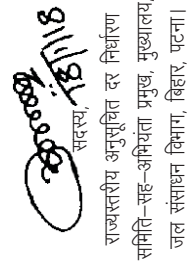 18/1/18
सदस्य,
राज्यस्तरीय अनुसूचित दर निर्धारण
समिति–सह–अभियंता प्रमुख, मुख्यालय,
जल संसाधन विभाग, बिहार, पटना।